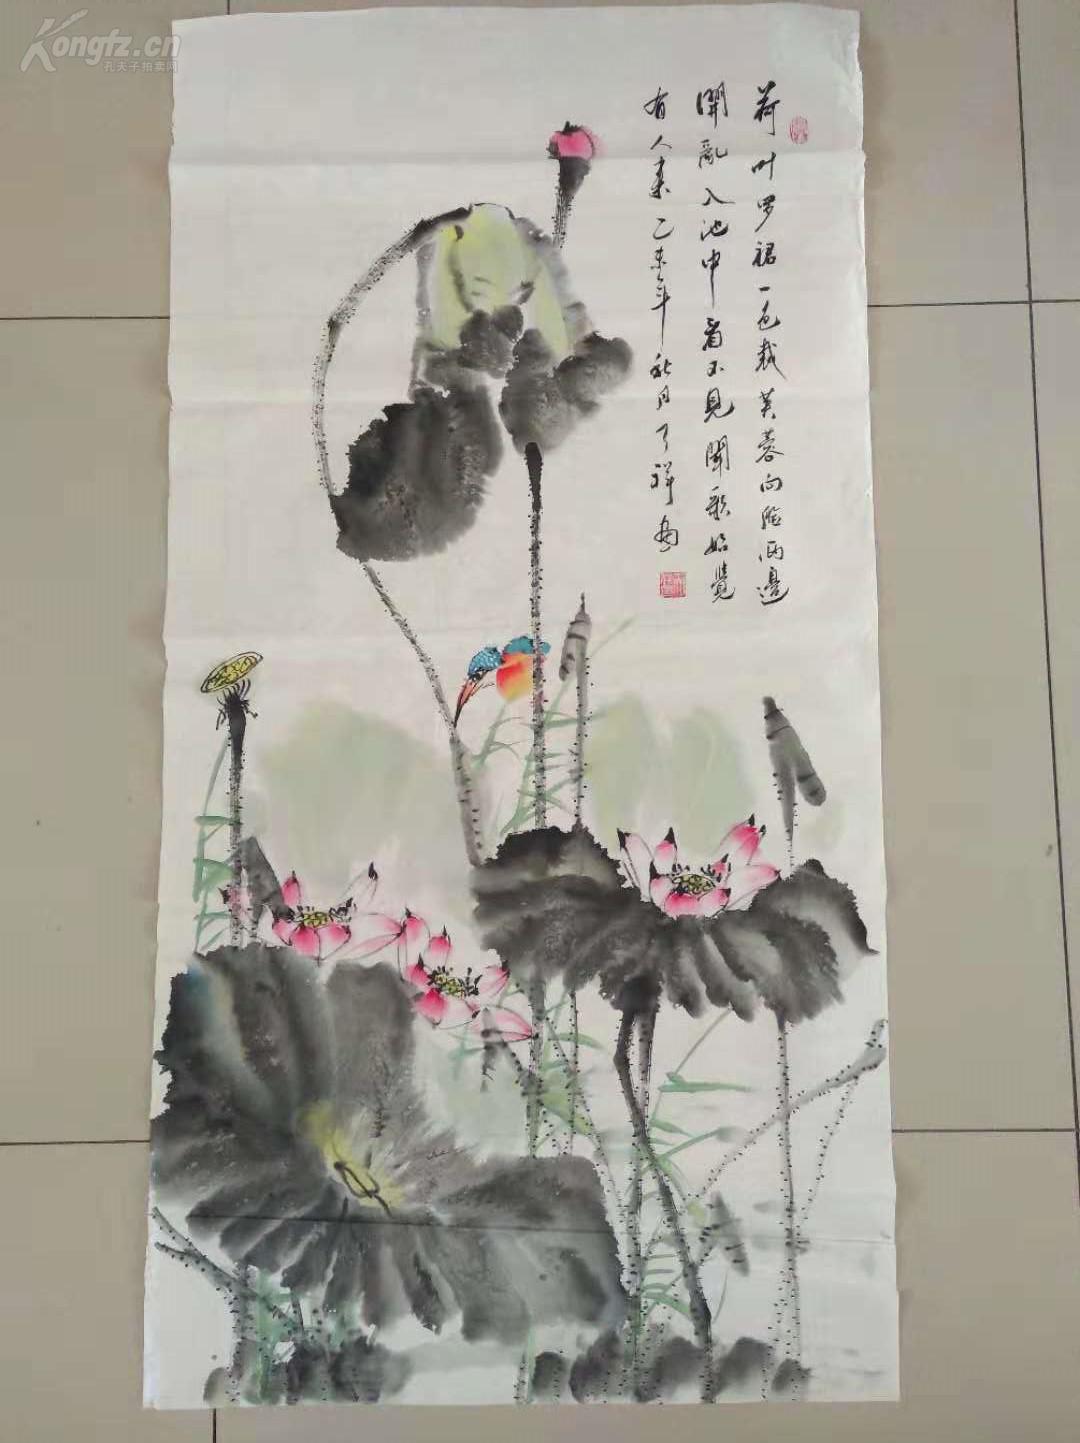 Kongfz.cn
孔夫子拍卖网
荷叶罗裙一色裁芙蓉向脸両邊
開亂入池中看不見聞歌始覺
有人来乙未年秋月了祥画